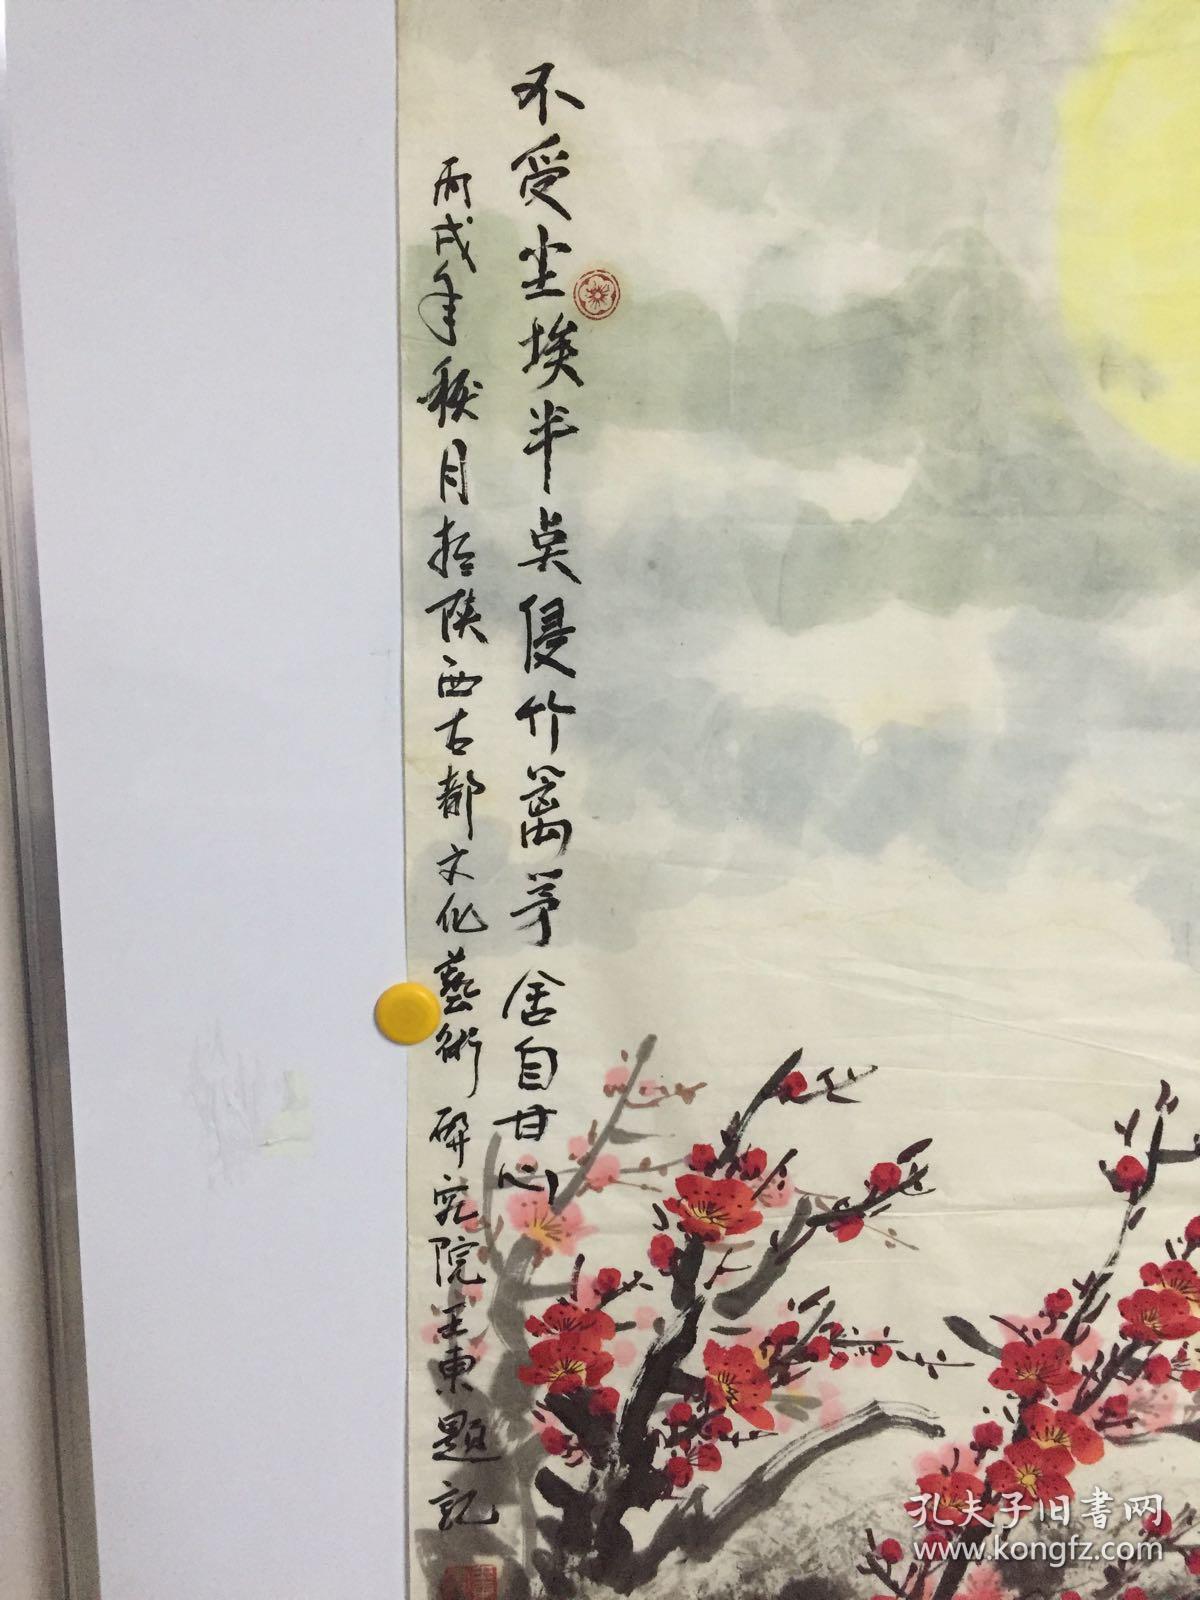 不受尘埃半点侵竹篱茅舍自甘心
丙戌年秋月于陕西古都文化藝術研究院王東題記
孔夫子旧書网
www.kongfz.com